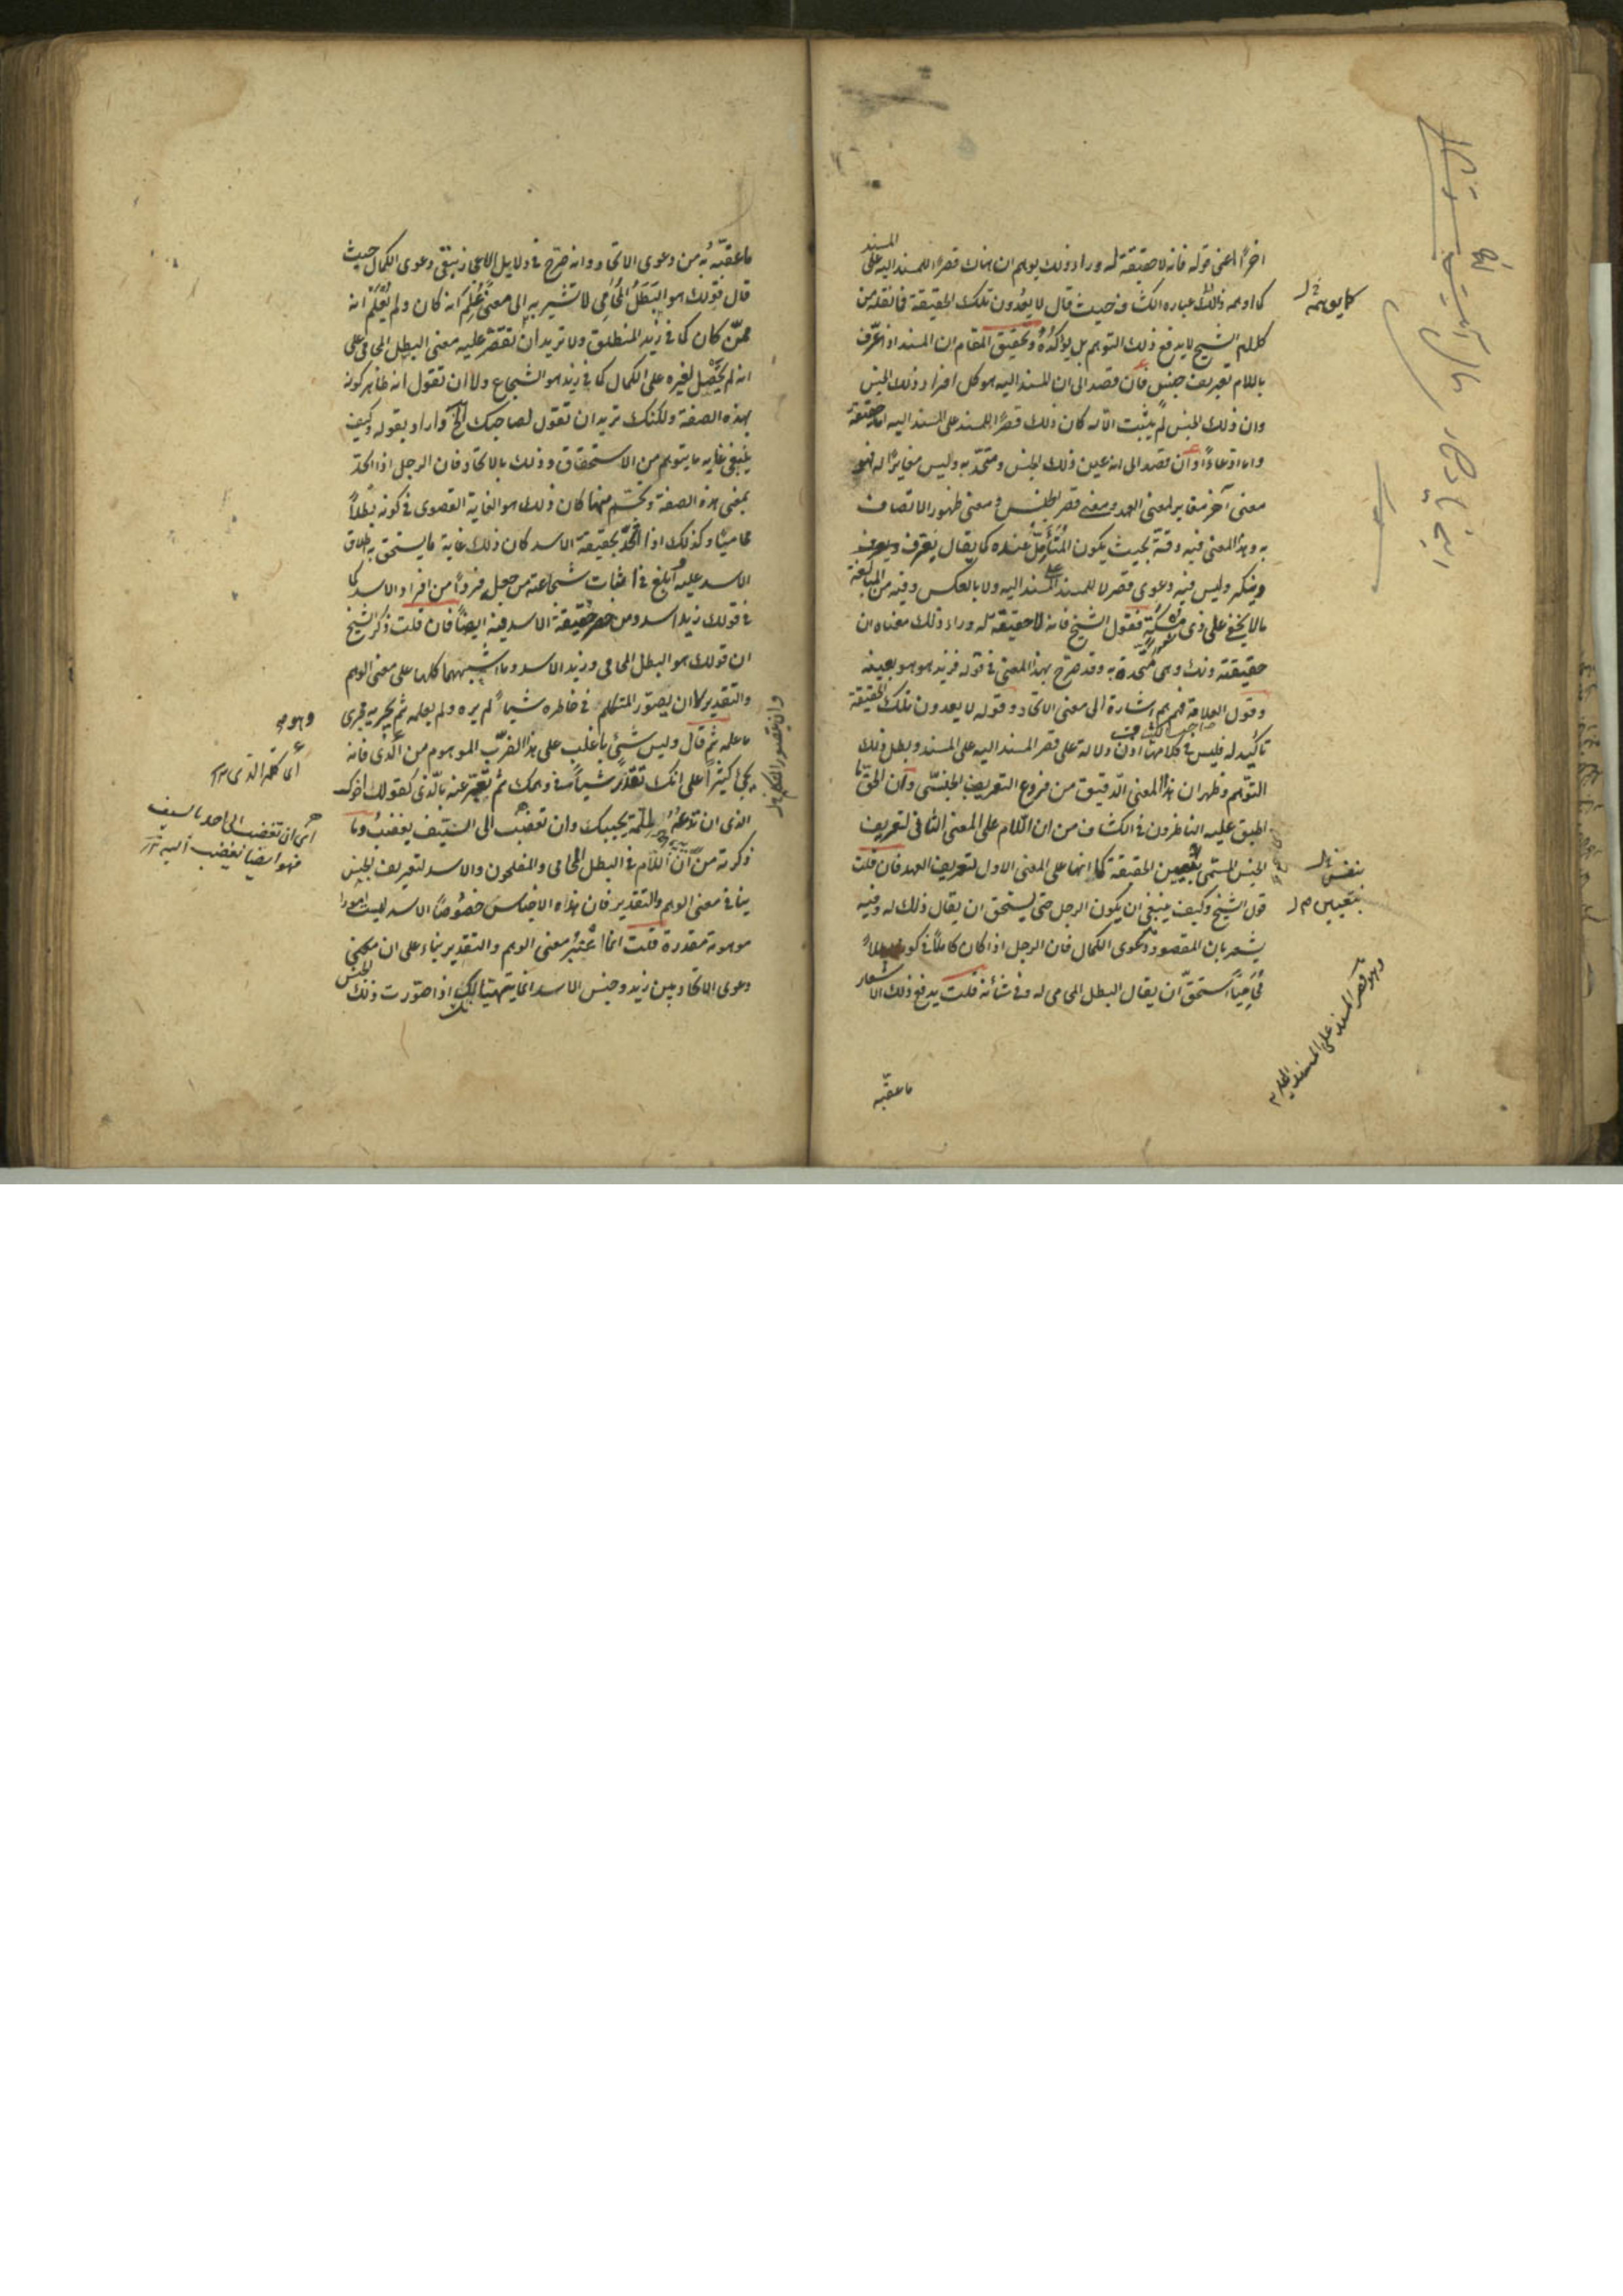 اخرًا اعنى قوله فانه لا حقيقة له وراء ذلك يوهم ان هناك قصرًا للمسند اليه على المسند
كما اوهمه ذلك عبارة الكشاف حيث قال لا يعدون تلك الحقيقة فانقله من
كلام الشيخ لا يدفع ذلك التوهم بل يؤكده وتحقيق المقام ان المسند اذا عرّف
باللام تعريف جنس فان قصد الى ان المسند اليه هو كل افراد ذلك الجنس
وان ذلك الجنس لم يثبت الا له كان ذلك قصرًا للمسند على المسند اليه اما حقيقة
واما ادعاءً وان قصد الى انه عين ذلك الجنس ومتحد به وليس مغايرًا له فهو
معنى آخر مغاير لمعنى العهد ومعنى قصر الجنس ومعنى ظهور الاتصاف
به وهذا المعنى فيه دقة بحيث يكون المتأمل عنده كما يقال يعرف
وينكر وليس فيه دعوى قصر لا للمسند على المسند اليه ولا بالعكس وفيه من المبالغة
ما لا يخفى على ذى مسكة فقول الشيخ فانه لا حقيقة له وراء ذلك معناه ان
حقيقته ذلك وهى متحدة به وقد صرّح بهذا المعنى فى قوله فزيد هو هو بعينه
وقول العلامة فهم هم اشارة الى معنى الاتحاد وقوله لا يعدون تلك الحقيقة
تأكيد له فليس فى كلامهما اذن دلالة على قصر المسند اليه على المسند وبطل ذلك
التوهم وظهر ان هذا المعنى الدقيق من فروع التعريف الجنسى وان الحق ما
اطبق عليه الناظرون فى الكشاف من ان اللام على المعنى الثانى لتعريف
الجنس المسمى بتعيين الحقيقة كما انها على المعنى الاول لتعريف العهد فان قلت
قول الشيخ وكيف ينبغى ان يكون الرجل حتى يستحق ان يقال ذلك له وفيه
يشعر بان المقصود دعوى الكمال فان الرجل اذا كان كاملًا فى كونه بطلًا
محاميًا استحق ان يقال البطل المحامى له وفى شأنه قلت يدفع ذلك الاشعار
ما عقبه
كما يوهمه
بتعيين
وهو قصر المسند على المسند اليه
ما عقبه به من دعوى الاتحاد وانه صرح فى دلايل الاعجاز بنفى دعوى الكمال حيث
قال قولك هو البطل المحامى لا تشير به الى معنى علم انه كان ولم يعلم انه
ممن كان كما فى زيد المنطلق ولا تريد ان تقصر عليه معنى البطل المحامى على
انه لم يحصل لغيره على الكمال كما فى زيد هو الشجاع ولا ان تقول انه ظاهر كونه
بهذه الصفة ولكنك تريد ان تقول لصاحبك الخ واراد بقوله وكيف
ينبغى غاية ما يتوهم من الاستحقاق وذلك بالاتحاد فان الرجل اذا اتحد
بمعنى هذه الصفة وتجسم منها كان ذلك هو الغاية القصوى فى كونه بطلًا
محاميًا وكذلك اذا اتحد بحقيقة الاسد كان ذلك غاية ما يستحق به اطلاق
الاسد عليه وابلغ فى اثبات شجاعته من جعله فردًا من افراد الاسد كما
فى قولك زيد اسد ومن حصر حقيقة الاسد فيه ايضًا فان قلت ذكر الشيخ
ان قولك هو البطل المحامى وزيد الاسد وما اشبههما كلها على معنى الوهم
والتقدير كان يصور المتكلم فى خاطره شيئًا لم يره ولم يعلمه ثم يجريه مجرى
ما علمه ثم قال وليس شىء باغلب على هذا الضرب الموهوم من الذى فانه
يجىء كثيرًا على انك تقدر شيئًا فى وهمك ثم تعبر عنه بالذى كقولك اخوك
الذى ان تدعه لملمة يجبك وان تغضب الى السيف يغضب وما
ذكرته من ان اللام فى البطل المحامى والمفلحون والاسد لتعريف الجنس
ينافى معنى الوهم والتقدير فان هذه الاجناس خصوصًا الاسد ليست امورا
موهومة مقدرة قلت انما اعتبر معنى الوهم والتقدير بناء على ان
دعوى الاتحاد بين زيد وجنس الاسد انما يتهيأ لك اذا صورت ذلك الجنس
وهو
اى كلمة الذى
اى ان تغضب الى احد بالسيف
فهو ايضا يغضب اليه